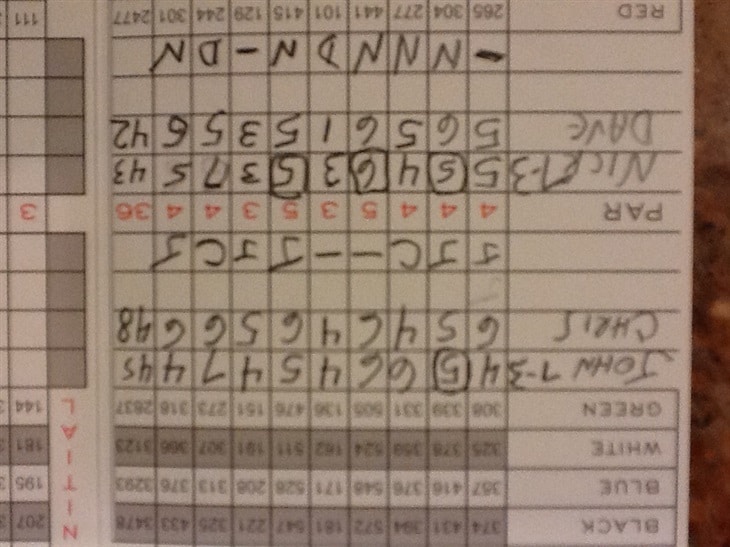 BLACK 374 431 394 572 181 547 221 325 433 3478 N 207
BLUE 357 416 376 548 171 528 208 313 376 3293 I T 195
WHITE 325 378 359 524 162 511 191 307 366 3123 I A 181
GREEN 308 339 331 505 136 476 151 273 318 2837 L 144
JOHN 7-3 4 5 6 6 4 5 4 7 4 45
CHRIS 6 5 4 6 4 6 5 6 6 48
J J C - - J J C J
PAR 4 4 4 5 3 5 3 4 4 36 3
NICK 7-3 5 5 4 6 3 5 3 7 5 43
DAVE 5 6 5 6 1 5 3 5 6 42
- N N N D N - D N
RED 265 304 277 441 101 415 129 244 301 2477 111